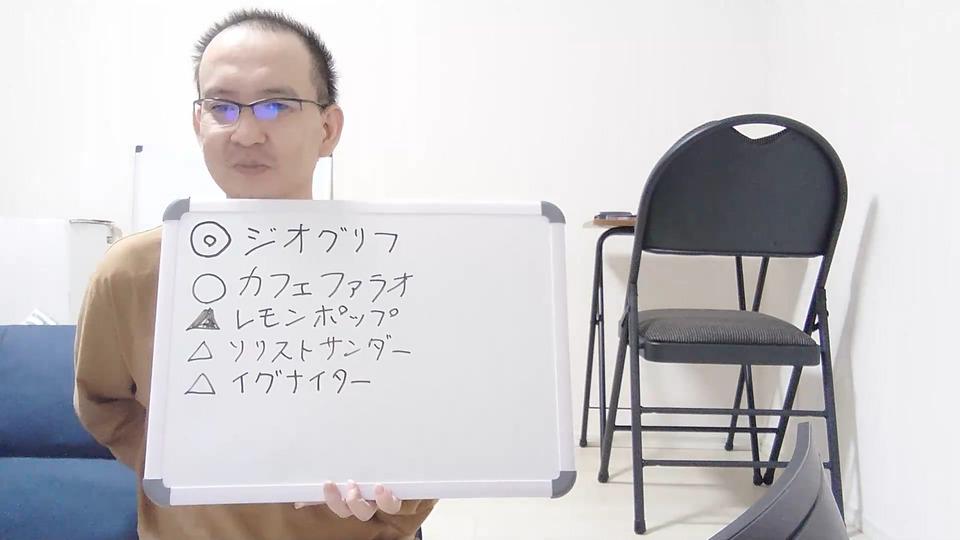 ◎ジオグリフ
○カフェファラオ
▲レモンポップ
△ソリストサンダー
△イグナイター